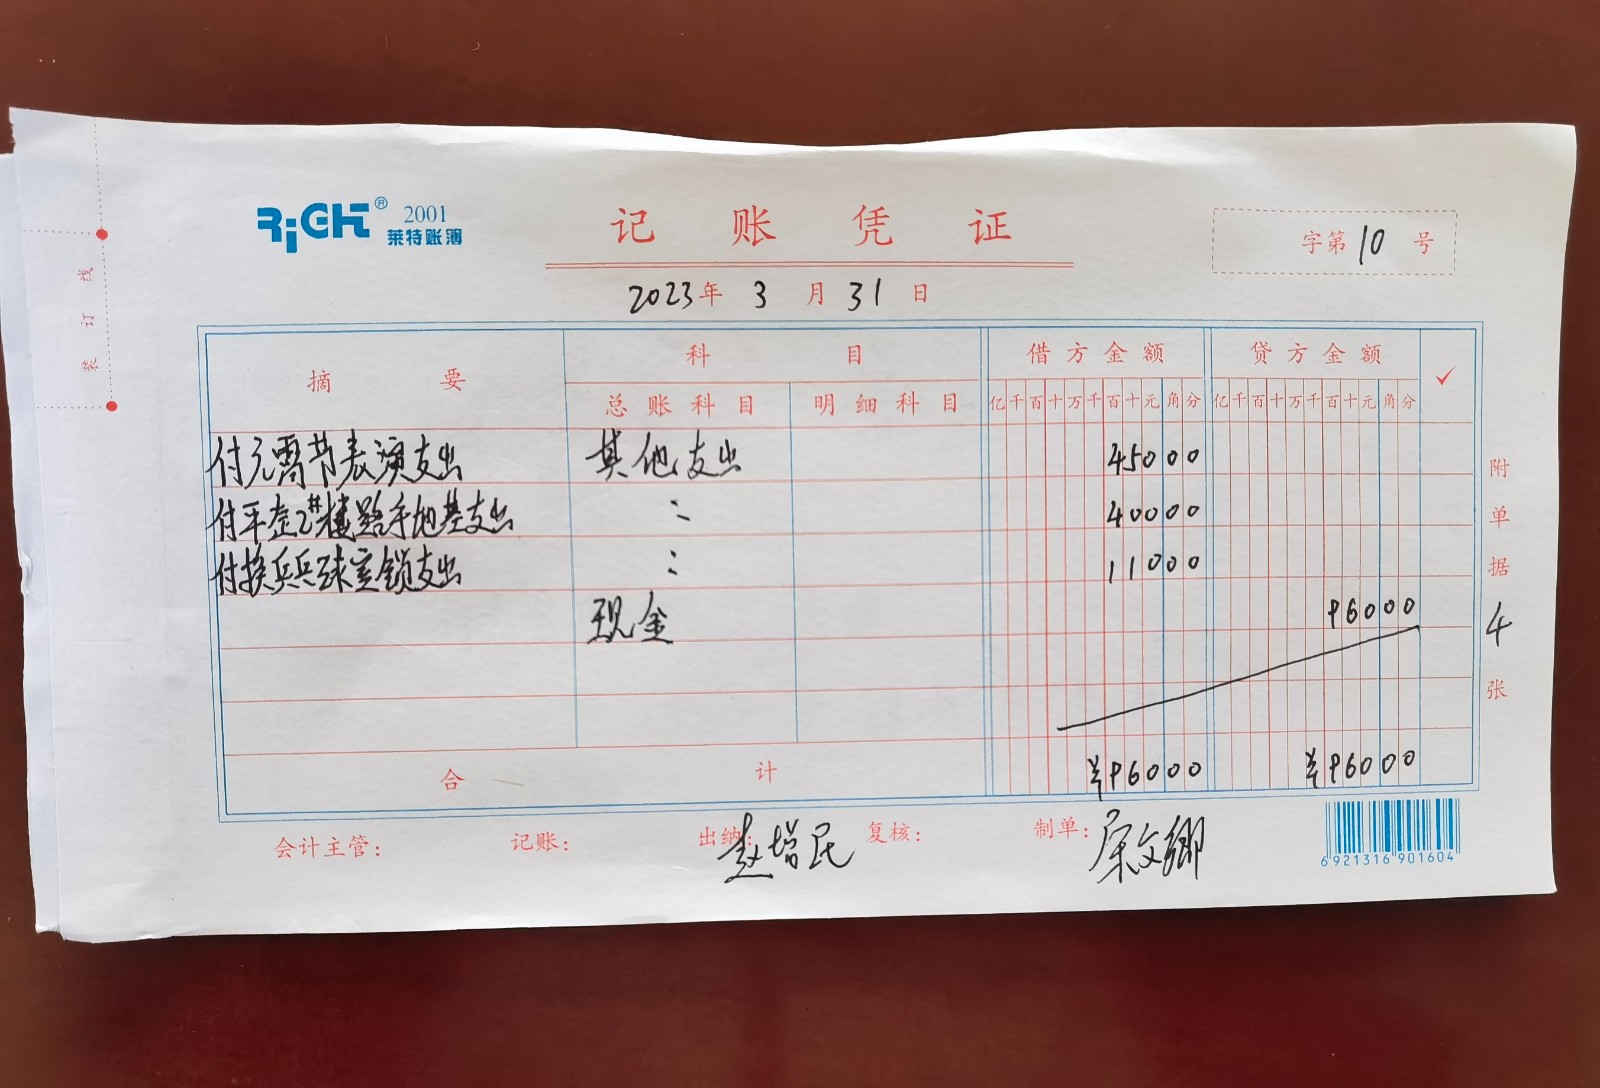 RiGHT® 2001
莱特账簿
记账凭证
字第10号
2023年3月31日
装订线
摘要 科目 借方金额 贷方金额 ✓
总账科目 明细科目 亿千百十万千百十元角分 亿千百十万千百十元角分
付元宵节表演支出 其他支出 45000
付平整2#楼 地基支出 〃 40000
付换乒乓球室锁支出 〃 11000
现金 96000
合计 ¥96000 ¥96000
附单据4张
会计主管: 记账: 出纳: 赵增民 复核: 制单:
6 921316 901604